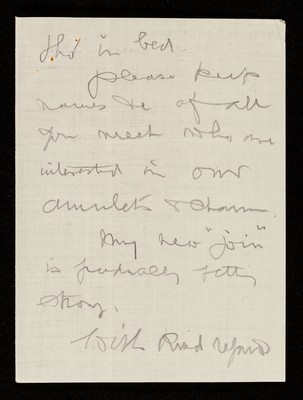 tho' in bed.
please keep
names &c of all
you meet who are
interested in our
amulets & charms.
My new "join"
is gradually getting
strong.
With kind regards